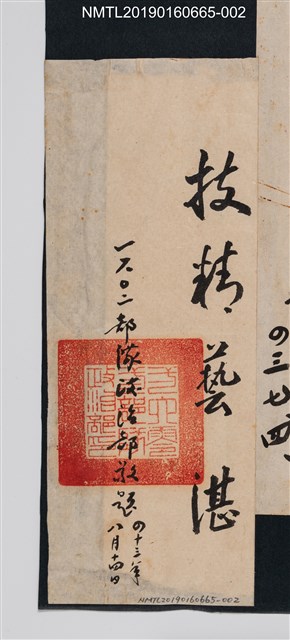 NMTL20190160665-002
技精藝湛
一六〇二部隊政治部敬題
四十三年
八月十四日
四三七四、
NMTL20190160665-002